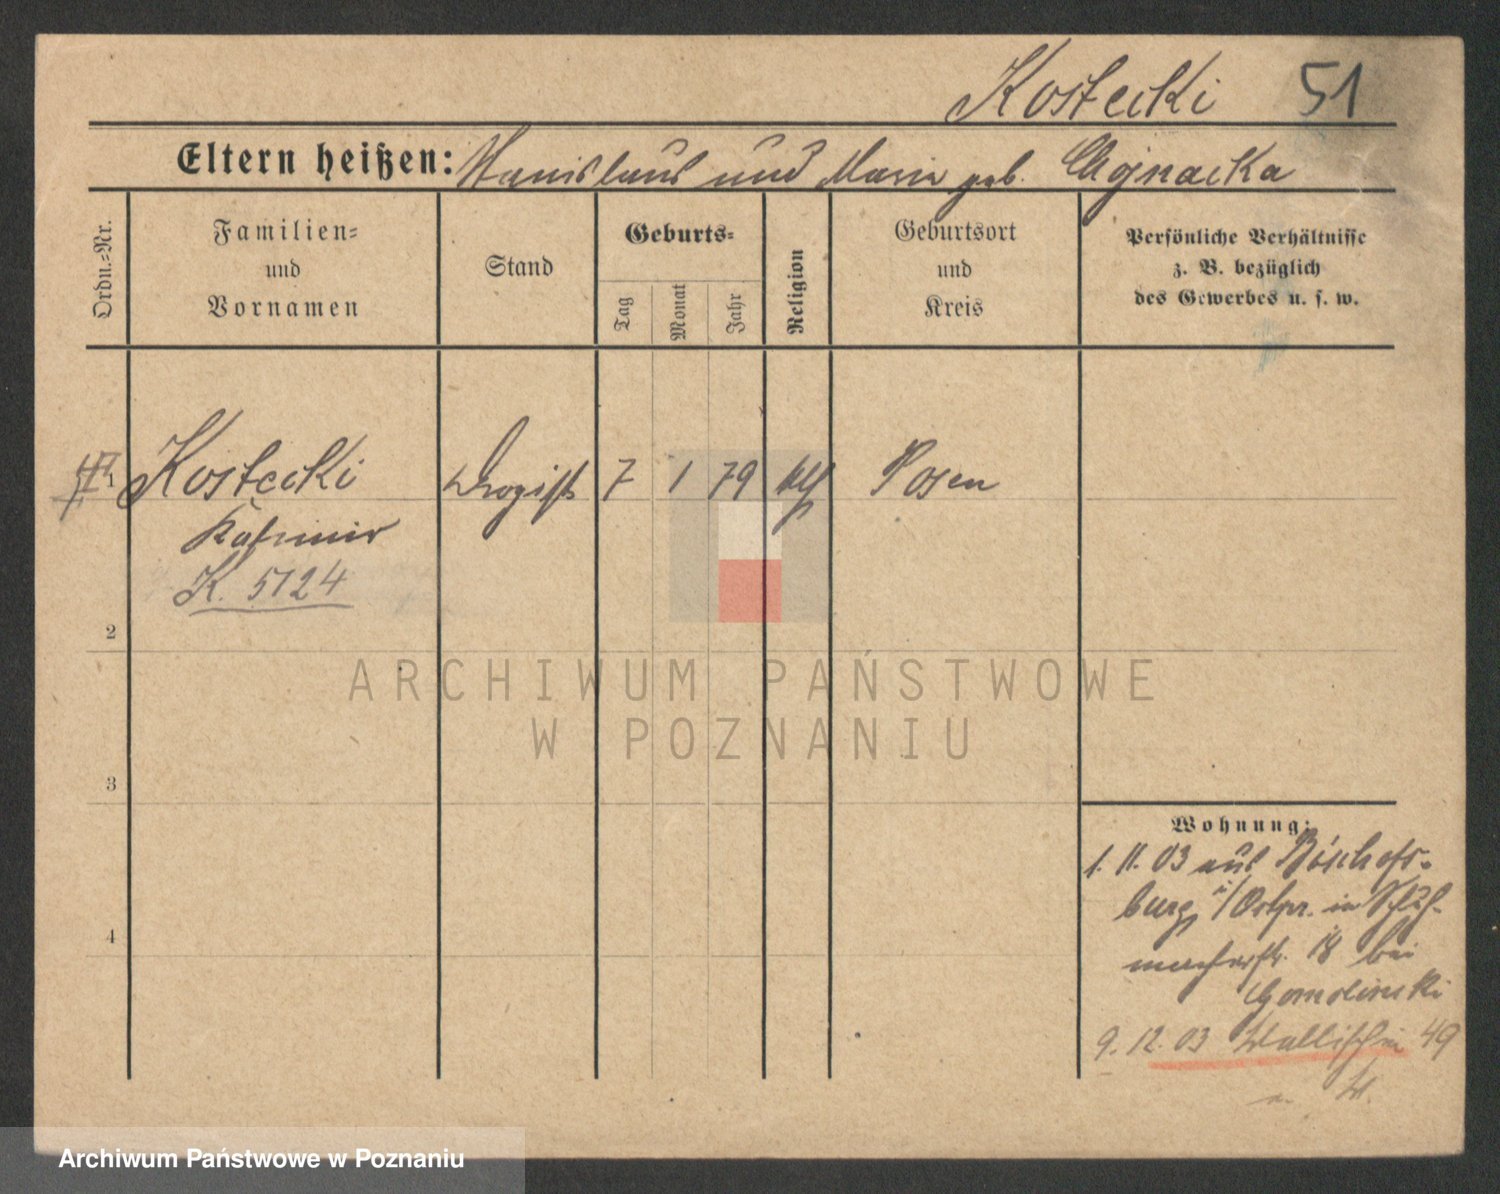 Kostecki 51
Eltern heißen: Stanislaus und Maria geb. Chojnacka
Ordn.=Nr.
Familien=
und
Vornamen
Stand
Geburts=
Tag
Monat
Jahr
Religion
Geburtsort
und
Kreis
Persönliche Verhältnisse
z. B. bezüglich
des Gewerbes u. s. w.
1 Kostecki Drogist 7 1 79 kth Posen
Kasimir
K. 5124
2
3
4
ARCHIWUM PAŃSTWOWE
W POZNANIU
Wohnung:
1. 11. 03 aus Bischofs-
burg i/Ostpr. in Schuh-
macherstr. 18 bei
Gomolinski
9. 12. 03 Wallischei 49
Archiwum Państwowe w Poznaniu